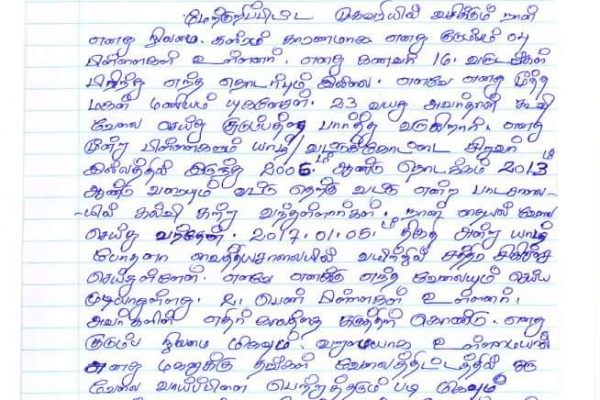 மேற்குறிப்பிட்ட முகவரியில் வசிக்கும் நான்
எனது நிலமை. கஸ்ரம் காரணமாக எனது குடும்பம் 04
பிள்ளைகள் உள்ளனர். எனது கணவர் 16. வருடங்கள்
பிரிந்து எந்த தொடர்பும் இல்லை. எனவே எனது மூத்த
மகன் 23 வயது அவர்தான் கூலி
வேலை செய்து குடும்பத்தை பார்த்து வருகிறார். எனது
மூன்று பிள்ளைகளும் யாழ்/ வட்டுக்கோட்டை சிறுவர்
இல்லத்தில் இருந்து 2006ம் ஆண்டு தொடக்கம் 2013ம்
ஆண்டு வரையும் என்ற பாடசாலை-
-யில் கல்வி கற்று வந்துள்ளார்கள். நான் தையல் வேலை
செய்து வந்தேன். 2017.01.05ம் திகதி அன்று யாழ்
போதனா வைத்தியசாலையில் வயிற்றில் சத்திர சிகிச்சை
செய்துள்ளேன். எனவே எனக்கு எந்த வேலையும் செய்ய
முடியாதுள்ளது. 2. பெண் பிள்ளைகள் உள்ளனர்.
அவர்களின் எதிர் காலத்தை கருத்தில் கொண்டு. எனது
குடும்ப நிலமை மிகவும். வறுமையாக உள்ளமையால்
எனது மகனுக்கு தங்கள் வேலைத்திட்டத்தில் ஒரு
வேலை வாய்ப்பினை பெற்றுத்தரும் படி மிகவும்